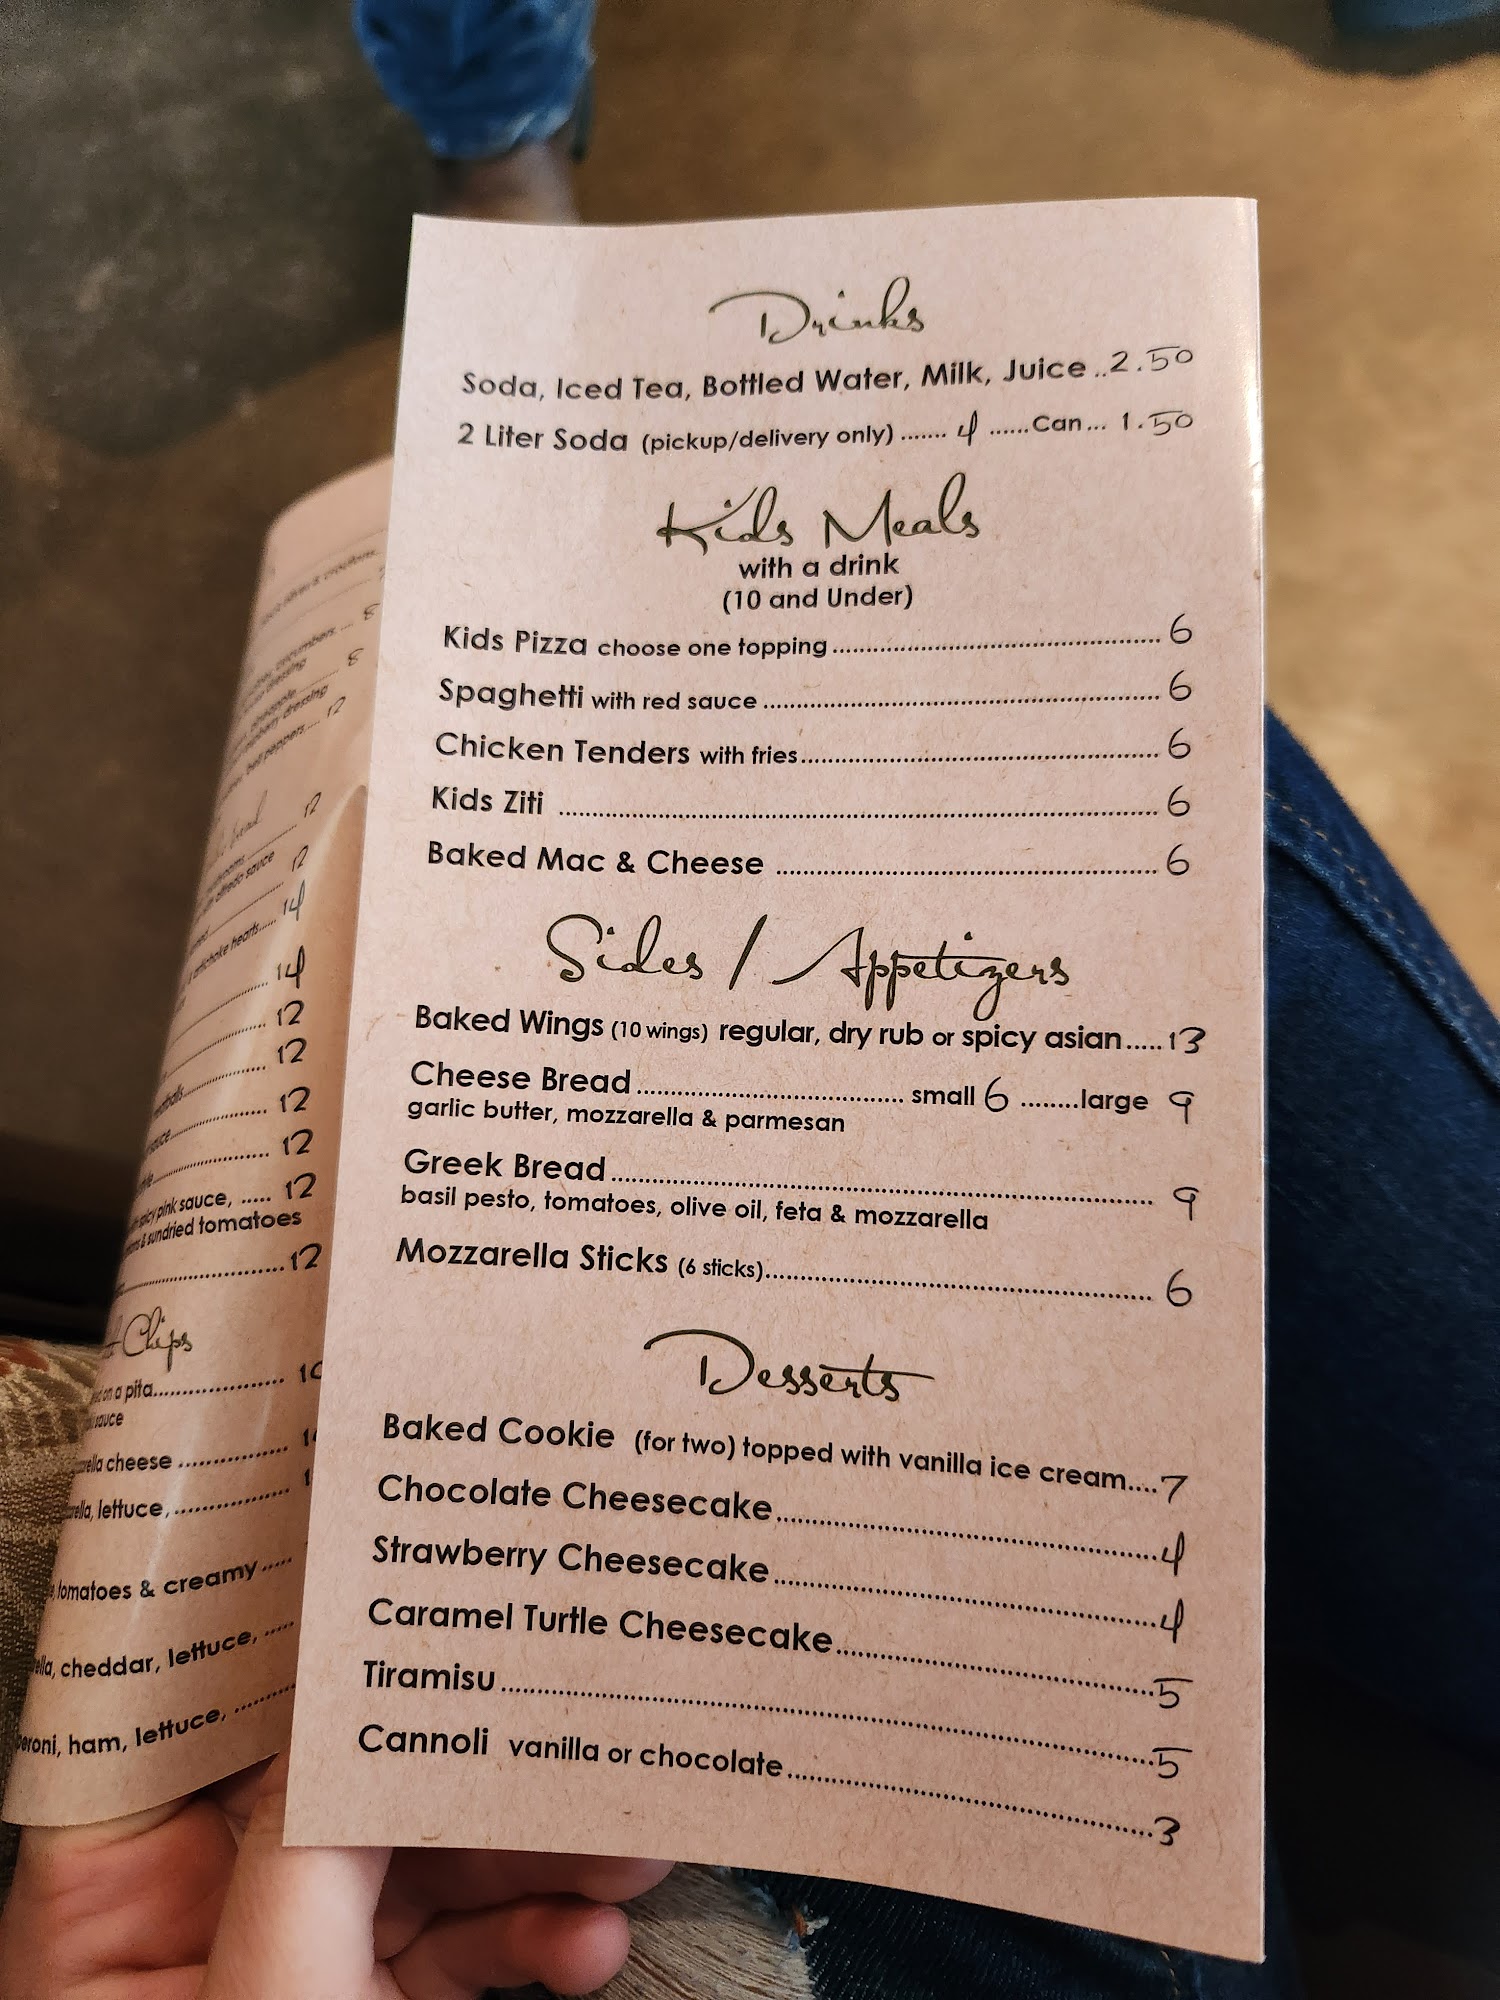 Drinks
Soda, Iced Tea, Bottled Water, Milk, Juice ..2.50
2 Liter Soda (pickup/delivery only) ....... 4 ......Can... 1.50
Kids Meals
with a drink
(10 and Under)
Kids Pizza choose one topping........ 6
Spaghetti with red sauce ........ 6
Chicken Tenders with fries........ 6
Kids Ziti ........ 6
Baked Mac & Cheese ........ 6
Sides / Appetizers
Baked Wings (10 wings) regular, dry rub or spicy asian.....13
Cheese Bread........ small 6 ........large 9
garlic butter, mozzarella & parmesan
Greek Bread........ 9
basil pesto, tomatoes, olive oil, feta & mozzarella
Mozzarella Sticks (6 sticks)........ 6
Desserts
Baked Cookie (for two) topped with vanilla ice cream....7
Chocolate Cheesecake........4
Strawberry Cheesecake........4
Caramel Turtle Cheesecake........5
Tiramisu........5
Cannoli vanilla or chocolate........3
cucumbers ... 8
dressing
8
dressing
bell peppers.... 12
bread
12
alfredo sauce
12
artichoke hearts..... 14
14
12
12
sauce........ 12
12
spicy pink sauce, ..... 12
& sundried tomatoes
12
Chips
on a pita........
sauce
cheese ........
lettuce, ........
tomatoes & creamy .....
cheddar, lettuce, .....
ham, lettuce, ........